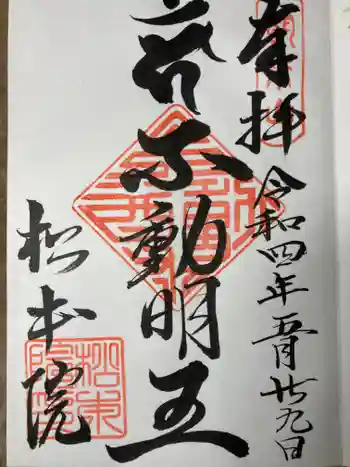 奉拝
令和四年五月廿九日
不動明王
松本院